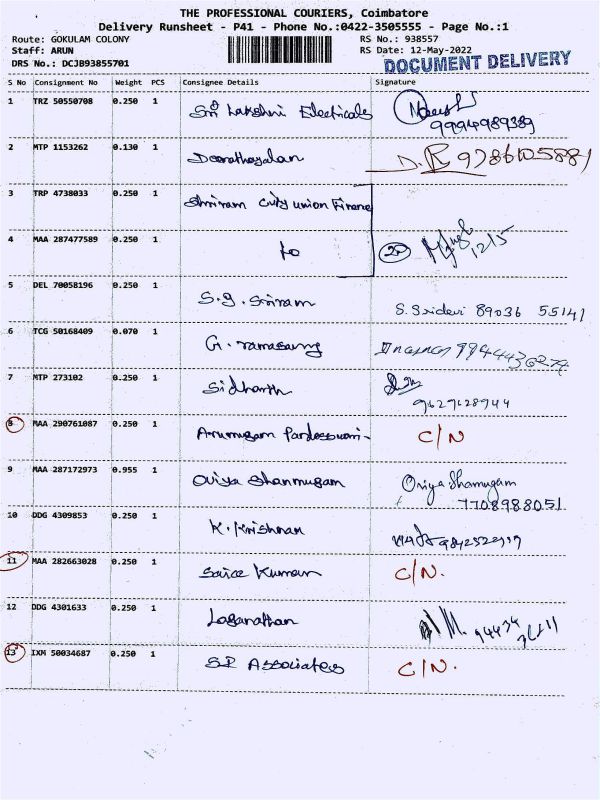 THE PROFESSIONAL COURIERS, Coimbatore
Delivery Runsheet - P41 - Phone No.:0422-3505555 - Page No.:1
Route: GOKULAM COLONY RS No.: 938557
Staff: ARUN RS Date: 12-May-2022
DRS No.: DCJB93855701 DOCUMENT DELIVERY
S No Consignment No Weight PCS Consignee Details Signature
1 TRZ 50550708 0.250 1 Sri Lakshmi Electricals
9994989389
2 MTP 1153262 0.130 1 D.R 9786105881
3 TRP 4738033 0.250 1 Shriram City union Finance
4 MAA 287477589 0.250 1 to 12/5
5 DEL 70058196 0.250 1 S.g. Sriram S.Sridevi 89036 55141
6 TCG 50168409 0.070 1 G. ramasamy
7 MTP 273102 0.250 1 Sidharth
9629628944
8 MAA 290761087 0.250 1 Arumugam C/N
9 MAA 287172973 0.955 1 Oviya Shanmugam Oviya Shamugam
7708988051
10 DDG 4309853 0.250 1 K. Krishnan
11 MAA 282663028 0.250 1 Kumar C/N.
12 DDG 4301633 0.250 1 Loganathan
13 IXM 50034687 0.250 1 S.P Associates C/N.